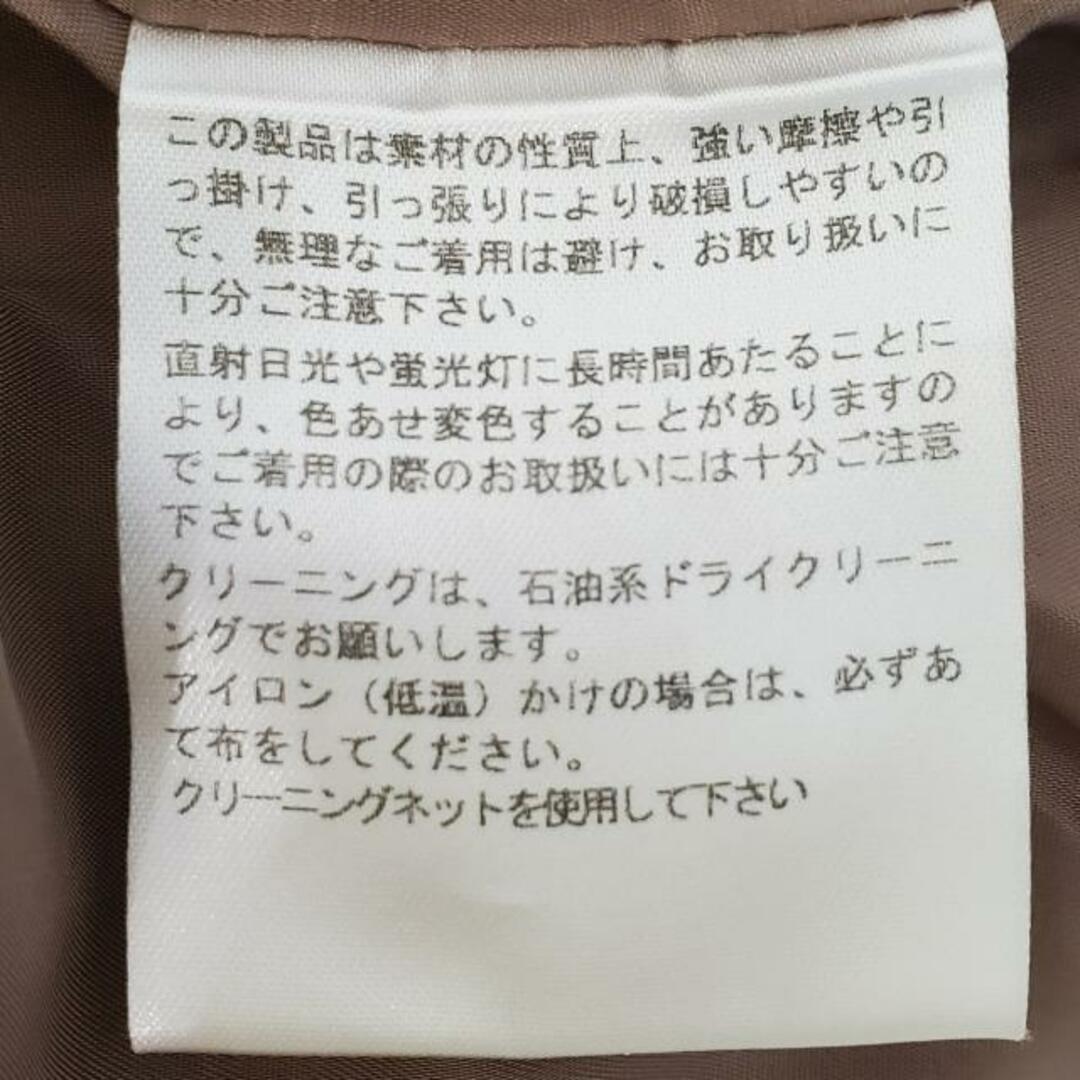 この製品は素材の性質上、強い摩擦や引
っ掛け、引っ張りにより破損しやすいの
で、無理なご着用は避け、お取り扱いに
十分ご注意下さい。
直射日光や蛍光灯に長時間あたることに
より、色あせ変色することがありますの
でご着用の際のお取扱いには十分ご注意
下さい。
クリーニングは、石油系ドライクリーニ
ングでお願いします。
アイロン（低温）かけの場合は、必ずあ
て布をしてください。
クリーニングネットを使用して下さい